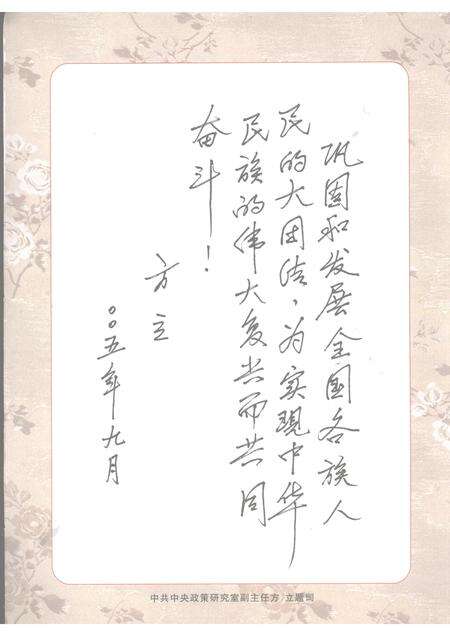 巩固和发展全国各族人
民的大团结，为实现中华
民族的伟大复兴而共同
奋斗！
方立
二〇〇五年九月
中共中央政策研究室副主任方立题词